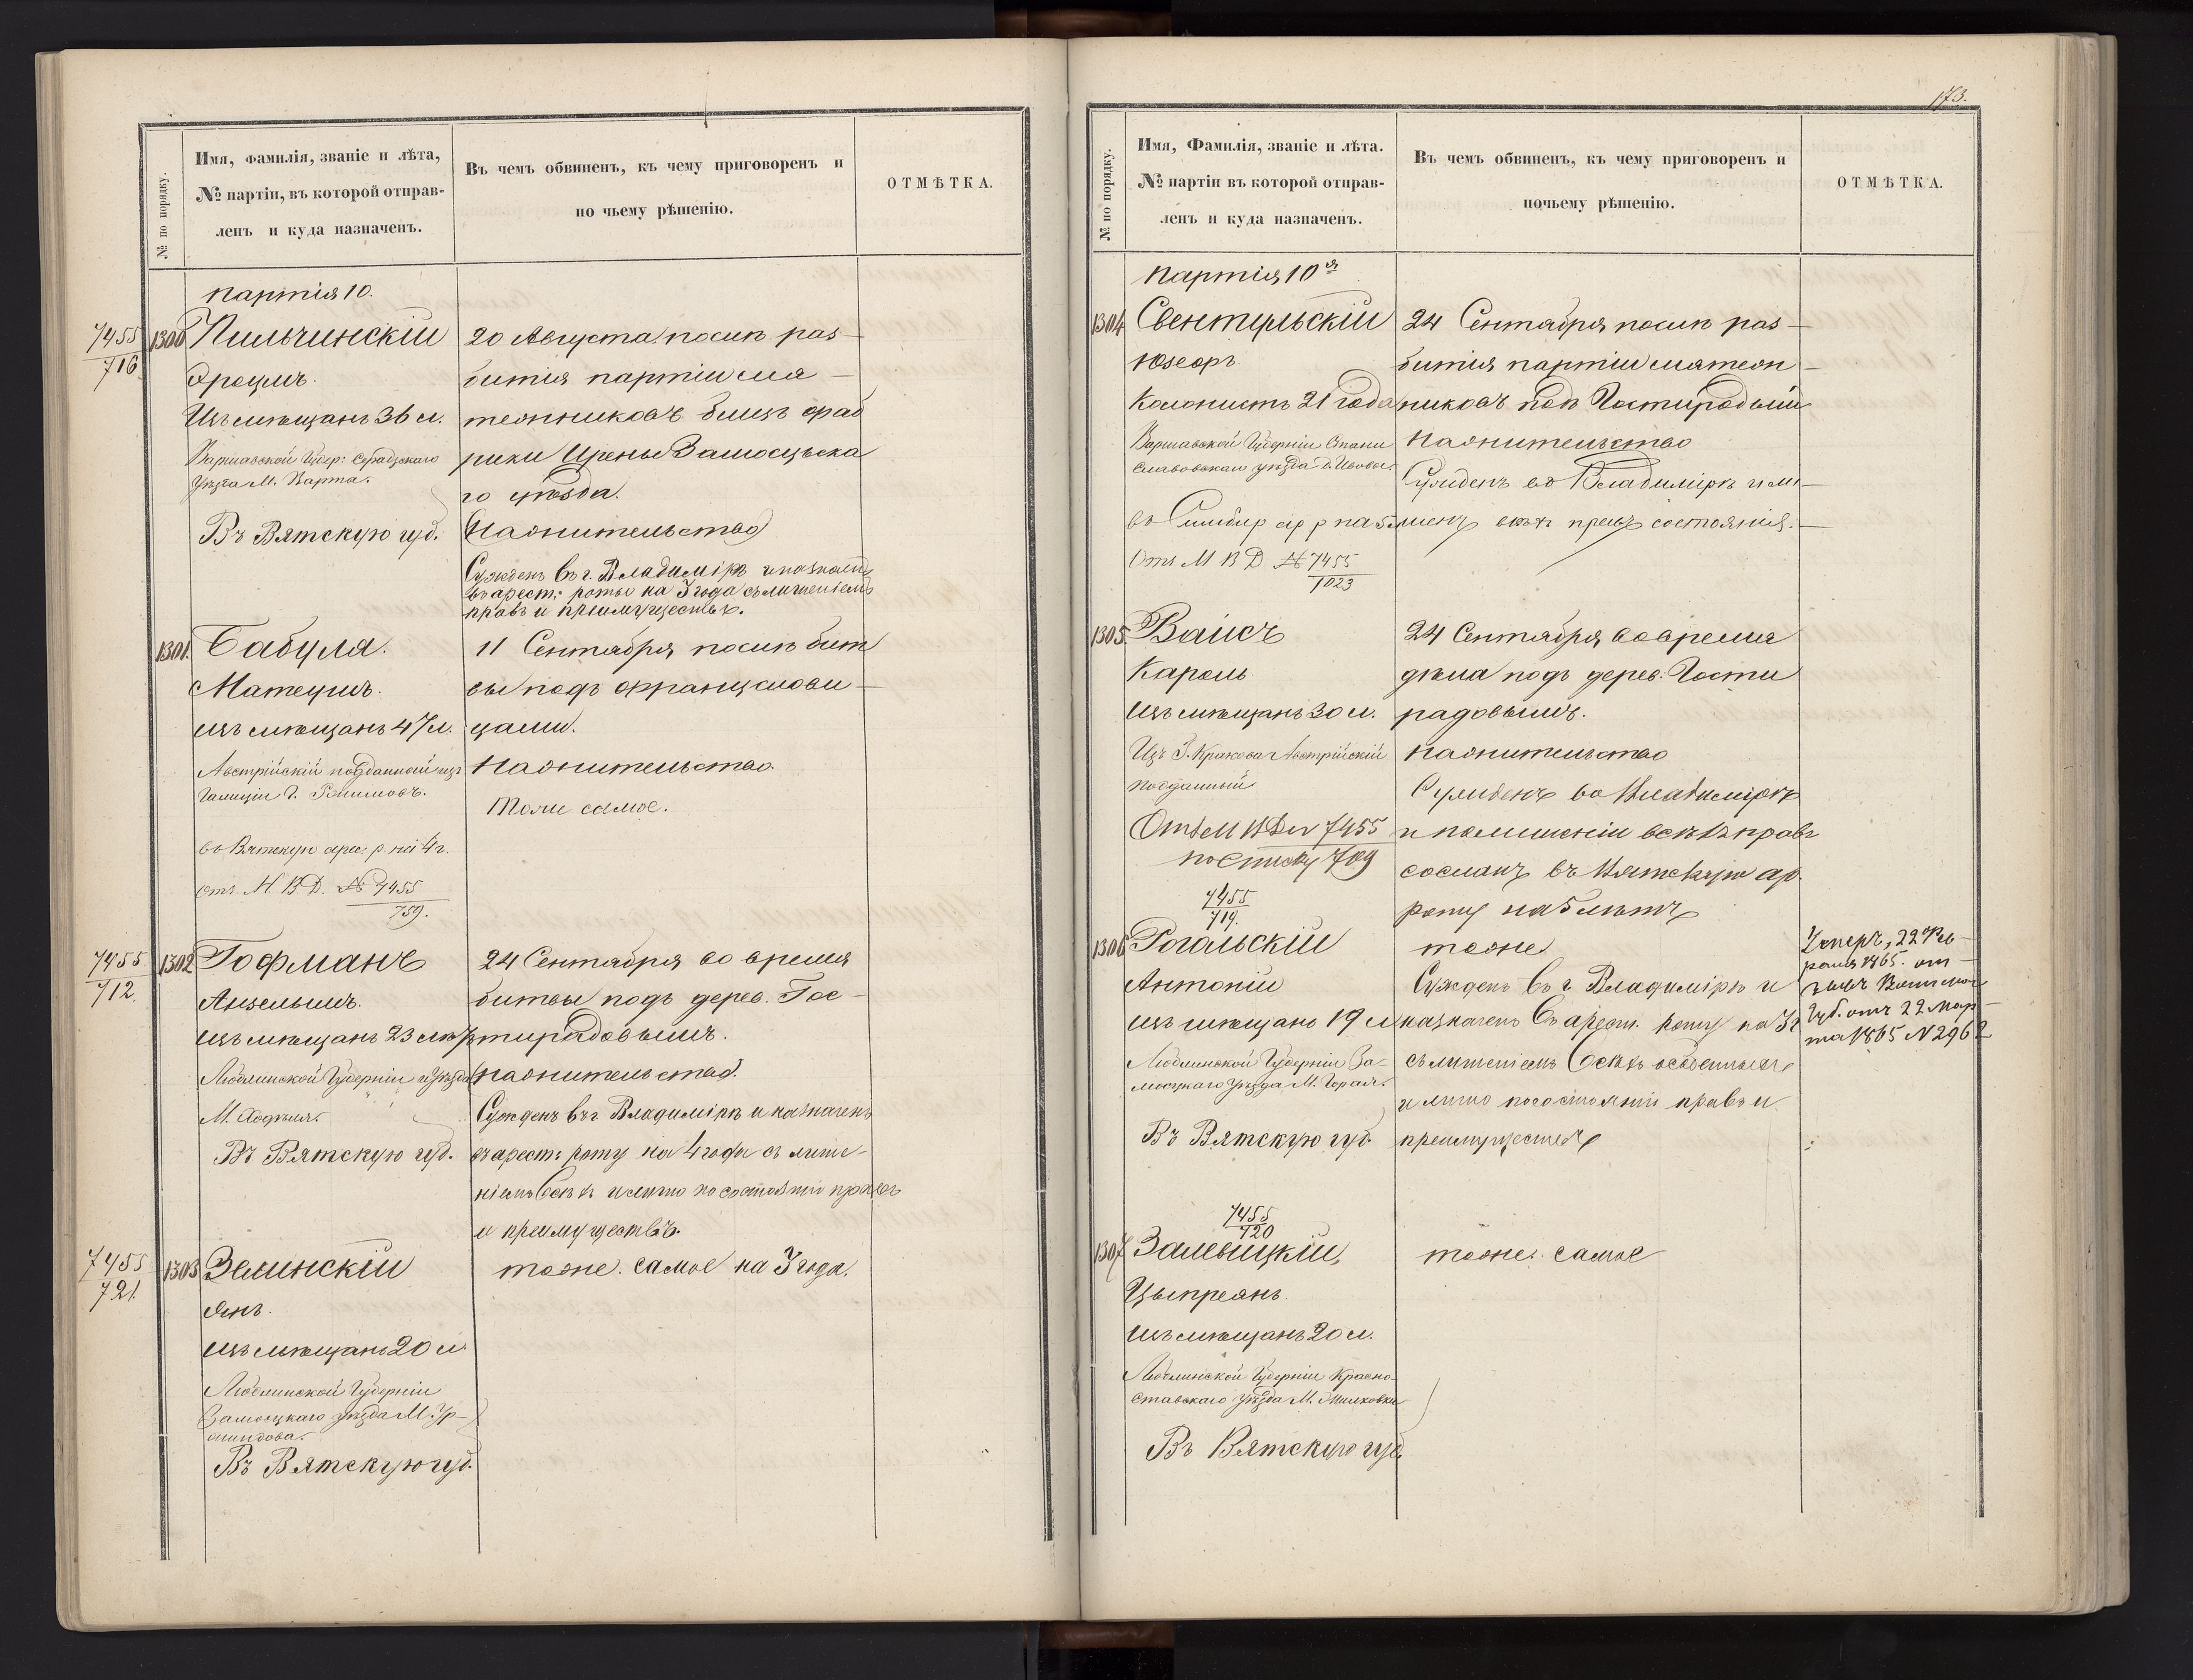 № по порядку.
Имя, фамилія, званіе и лѣта,
№ партіи, въ которой отправ-
ленъ и куда назначенъ.
Въ чемъ обвиненъ, къ чему приговоренъ и
по чьему рѣшенію.
ОТМѢТКА.
партія 10.
7455
716
1300
Пильчинскій
Изъ мѣщанъ 36 л.
Варшавской Губер: Серадзскаго
Уѣзда М. Варта.
Въ Вятскую губ.
20 Августа послѣ раз-
битія партіи мя-
тежниковъ близъ фаб
рики Ирены Замосцьска
го уѣзда.
Жондительство
Сужденъ въ г. Владимірѣ и назначенъ
въ арест: роты на 3 года съ лишеніемъ
правъ и преимуществъ.
1301.
Бабуля.
Матеушъ.
изъ мѣщанъ 47 л.
Австрійскій подданный изъ
Галиціи Г.
въ Вятскую арес. р. на 4 г.
отъ М В Д. № 7455
759.
11 Сентября послѣ бит
вы подъ Францилови-
цами.
Тоже самое.
7455
712.
1302
Гофманъ
Анзельмъ.
изъ мѣщанъ 23 лѣтъ
Люблинской Губерніи и Уѣзда
М. Ходель.
Въ Вятскую губ.
24 Сентября во время
битвы подъ дерев. Гос-
тирадовымъ.
Сужденъ въ г. Владимірѣ и назначенъ
въ арест: роту на 4 года съ лише-
ніемъ всѣхъ и лично по состоянію правъ
и преимуществъ.
7455
721.
1303
Зелинскій
Янъ.
изъ мѣщанъ 20 л.
Люблинской Губерніи
Замосцкаго уѣзда М.
Въ Вятскую губ.
тоже самое на 3 года.
173.
№ по порядку.
Имя, Фамилія, званіе и лѣта.
№ партіи въ которой отправ-
ленъ и куда назначенъ.
Въ чемъ обвиненъ, къ чему приговоренъ и
почьему рѣшенію.
ОТМѢТКА.
Партія 10я
1304
Юзефъ
Колонистъ 21 года
Варшавской Губерніи Стани
славовскаго уѣзда
въ Симбир ар р на 5 лѣтъ
Отъ М В Д № 7455
1023
24 Сентября послѣ раз-
битія партіи мятеж-
никовъ подъ Гостирадовымъ
Сужденъ во Владимірѣ и ли-
шенъ всѣхъ правъ состоянія.
1305.
Вайсъ
Кароль.
Изъ мѣщанъ 30 л.
Изъ Г. Кракова Австрійскій
подданный
Отъ М В Д № 7455
по списку 709
24 Сентября во время
дѣла подъ дерев. Гости
радовымъ.
Сужденъ во Владимірѣ
и по лишеніи всѣхъ правъ
сосланъ въ Вятскую ар.
роту на 5 лѣтъ
7455
719.
1306
Рогальскій
Антоній
изъ мѣщанъ 19 л
Люблинской Губерніи За-
мосцкаго Уѣзда М. Горай.
Въ Вятскую губ.
тоже
Сужденъ въ г. Владимірѣ и
назначенъ въ арест. роту на 3 г
съ лишеніемъ всѣхъ особенныхъ
и лично по состоянію правъ и
преимуществъ
Умеръ, 22 Фев-
раля 1865. от-
Губ. отъ 22 Мар-
та 1865 N 2962
7455
720
1307
Залевицкій,
Цыпреянъ.
изъ мѣщанъ 20 л.
Люблинской Губерніи Красно-
ставскаго уѣзда М.
Въ Вятскую губ.
тоже самое